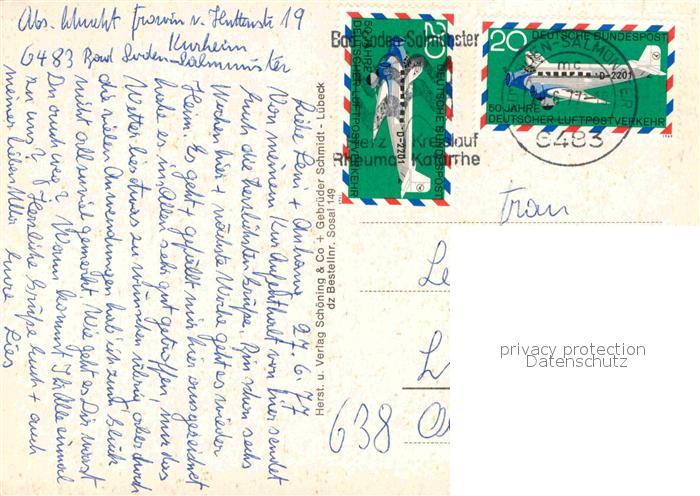 Abs. Frowin v. Huttenstr 19
Kurheim
6483 Bad Soden-Salmünster
27.6.77
Liebe + 
Von meinem Kuraufenthalt von hier sendet
Euch die herzlichsten Grüße. Bin schon sechs
Wochen hier + nächste Woche geht es wieder
Heim. Es geht + gefällt mir hier ausgezeichnet
habe es in Allem sehr gut getroffen, nur das
Wetter etwas zu wünschen übrig aber durch
die vielen Anwendungen hab ich zum Glück
nicht gemerkt. Wie geht es Dir warst
Du auch weg? Wann kommt Ihr alle einmal
zu uns? Herzliche Grüße Euch + auch
meiner lieben
Eure Lies
Herst. u. Verlag Schöning & Co + Gebrüder Schmidt - Lübeck
dz Bestellnr. Sosal 149
Bad Soden-Salmünster
Herz Kreislauf
Rheuma Katarrhe
20
DEUTSCHE BUNDESPOST
D-2201
50 JAHRE
DEUTSCHER LUFTPOSTVERKEHR
20
DEUTSCHE BUNDESPOST
D-2201
50 JAHRE
DEUTSCHER LUFTPOSTVERKEHR
1969
SODEN-SALMÜNSTER
mc
6483
Frau
638
privacy protection
Datenschutz